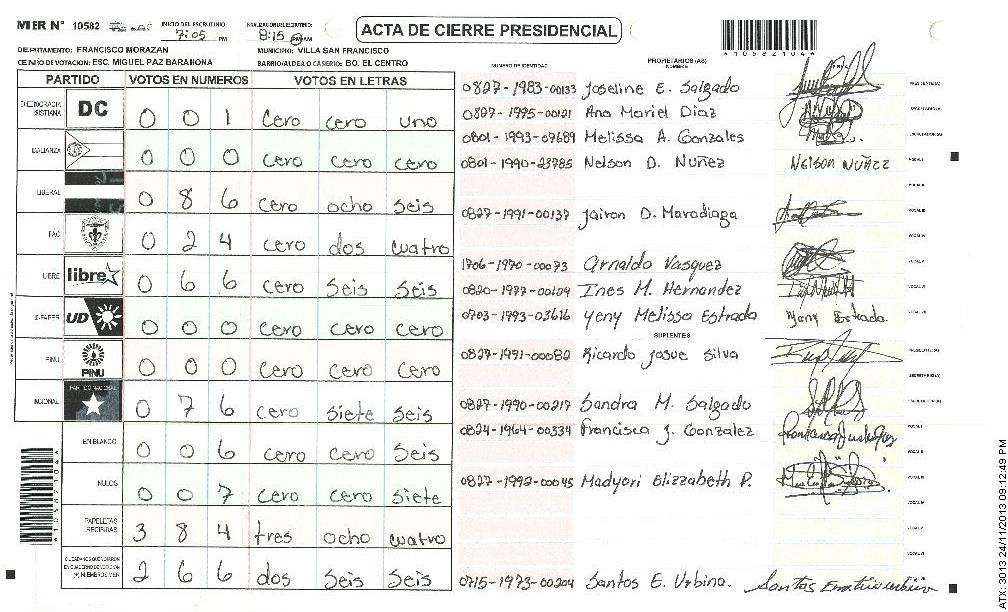 MER N° 10582
INICIO DEL ESCRUTINIO 7:05 PM
FINALIZACION ESCRUTINIO: 8:15 PM
ACTA DE CIERRE PRESIDENCIAL
*10582104*
DEPARTAMENTO: FRANCISCO MORAZAN
MUNICIPIO: VILLA SAN FRANCISCO
CENTRO DE VOTACION: ESC. MIGUEL PAZ BARAHONA
BARRIO/ALDEA O CASERIO: BO. EL CENTRO
PARTIDO VOTOS EN NUMEROS VOTOS EN LETRAS
DEMOCRACIA CRISTIANA DC 0 0 1 cero cero uno
ALIANZA 0 0 0 cero cero cero
LIBERAL 0 8 6 cero ocho seis
PAC 0 2 4 cero dos cuatro
LIBRE libre 0 6 6 cero seis seis
UD 0 0 0 cero cero cero
PINU PINU 0 0 0 cero cero cero
NACIONAL PARTIDO NACIONAL 0 7 6 cero siete seis
EN BLANCO 0 0 6 cero cero seis
NULOS 0 0 7 cero cero siete
PAPELETAS RECIBIDAS 3 8 4 tres ocho cuatro
CIUDADANOS QUE VOTARON EN CUADERNO DE VOTACION (+) MIEMBROS MER 2 6 6 dos seis seis
NUMERO DE IDENTIDAD PROPIETARIOS (AS) NOMBRE
0827-1983-00133 Joseline E. Salgado
0827-1995-00121 Ana Mariel Diaz
0801-1993-07689 Melissa A. Gonzales
0801-1990-23785 Nelson D. Nuñez Nelson Nuñez
0827-1991-00137 Jairon D. Maradiaga
1706-1970-00073 Arnaldo Vasquez
0820-1977-00109 Ines M. Hernandez
0703-1993-03616 Yeny Melissa Estrada Yeny Estrada
SUPLENTES
0827-1991-00082 Ricardo Josue Silva
0827-1990-00217 Sandra M. Salgado
0824-1964-00334 Francisca J. Gonzalez
0827-1992-00045 Madyori Elizzabeth P.
0715-1973-00204 Santos E. Urbina.
*10582104*
ATX-3013 24/11/2013 09:12:49 PM